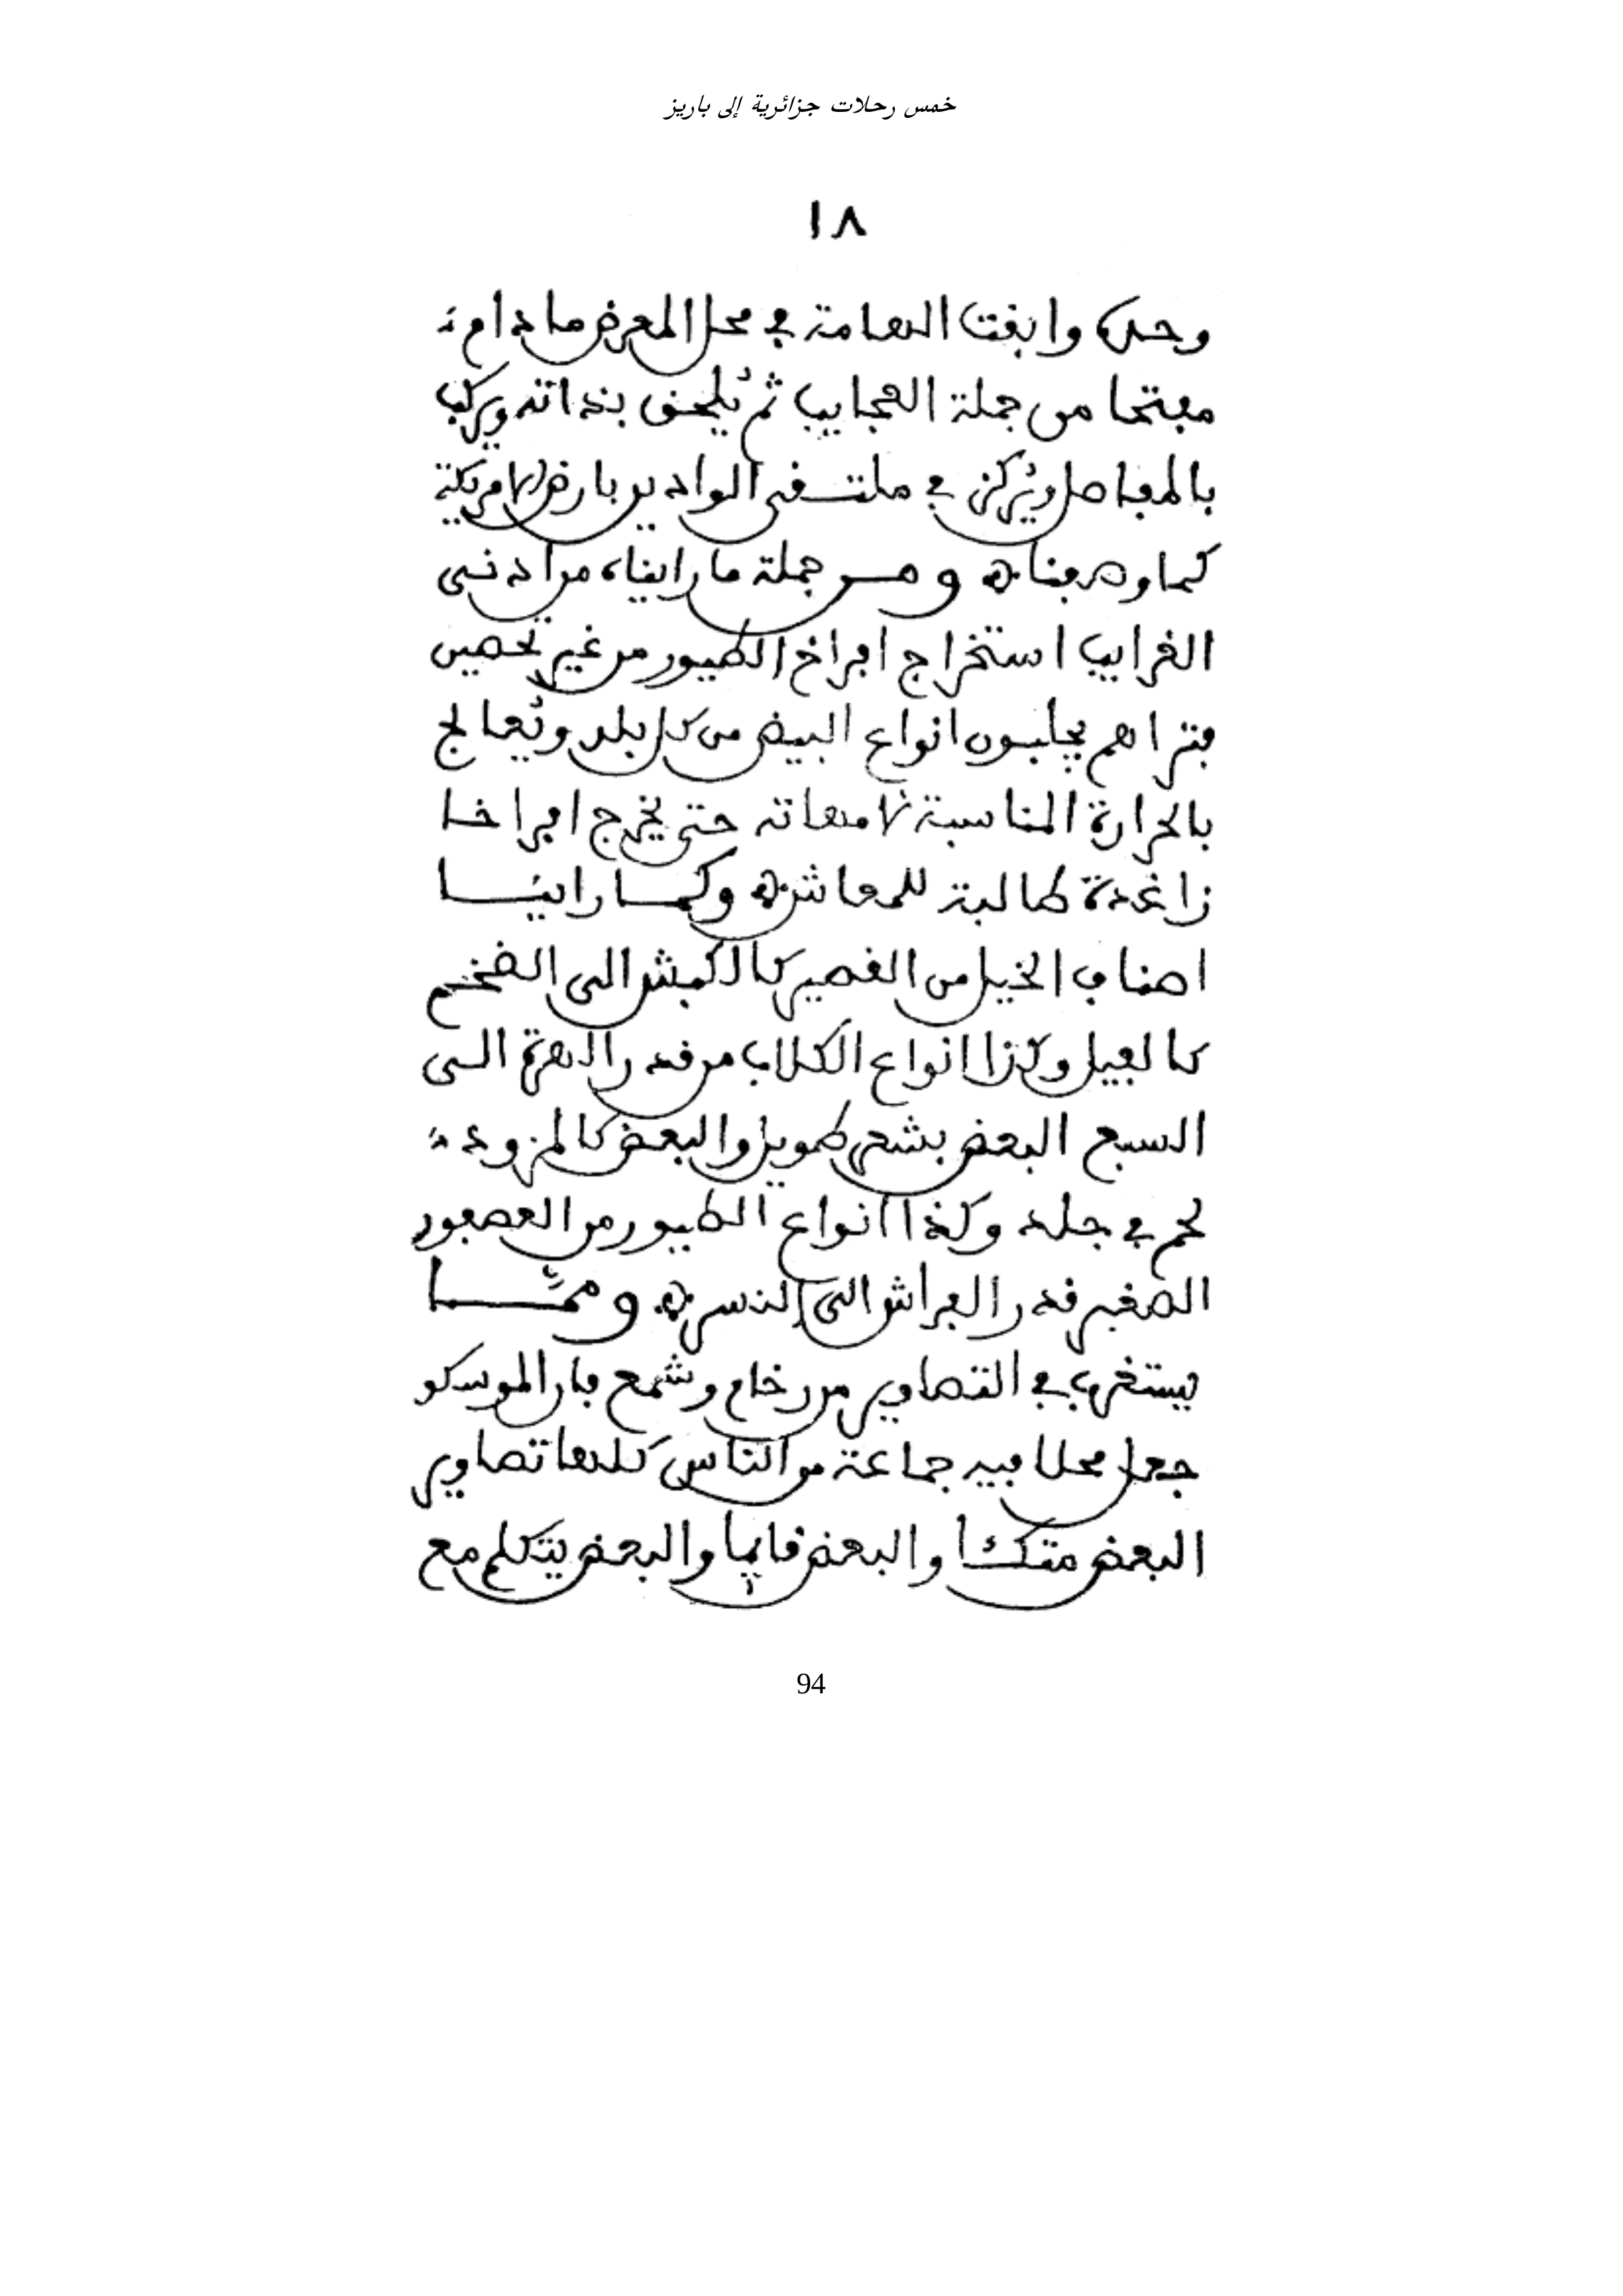 خمس رحلات جزائرية إلى باريز
١٨
وحده وابقت الهامة في محل المعرض ما دام
مفتحا من جملة العجايب ثم يُلحق بذاته ويركب
بالمفاصل ويُركز في ملتقى الوادين بارض الامريكة
كما وصفناه ومن جملة ما رايناه من ادنى
الغرايب استخراج افراخ الطيور من غير تحصين
فتراهم يجلبون انواع البيض من كل بلد ويُعالج
بالحرارة المناسبة لامهاته حتى يخرج افراخا
زاغدة طالبة للمعاش وكما راينا
اصناف الخيل من القصير كالكبش الى الضخيم
كالفيل وكذا انواع الكلاب من قدر الهرة الى
السبع البعض بشعر طويل والبعض كالمزود
لحم في جلد وكذا انواع الطيور من العصفور
الصغير قدر الفراش الى النسر ومما
يستغرب في التصاوير من رخام وشمع فان الموسكو
جعل محلا فيه جماعة من الناس كلها تصاوير
البعض متكئا والبعض قايما والبعض يتكلم مع
94